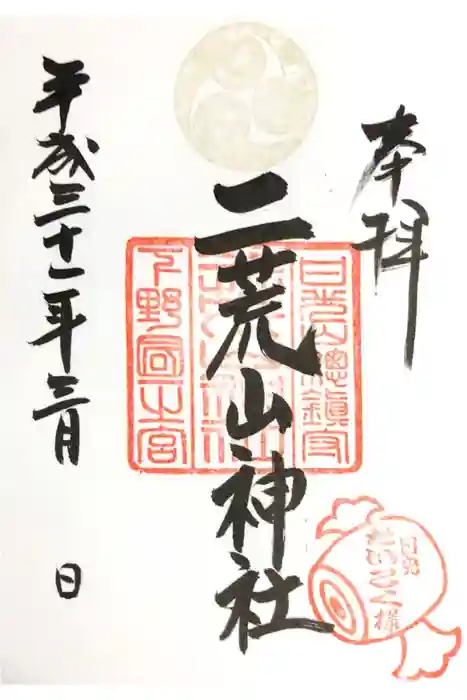 奉拝
二荒山神社
平成三十一年三月 日
日光山總鎮守
下野國一之宮
日光
だいこく様